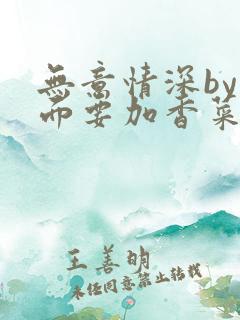 無意情深by
而要加香菜
王善明
未经同意禁止转载